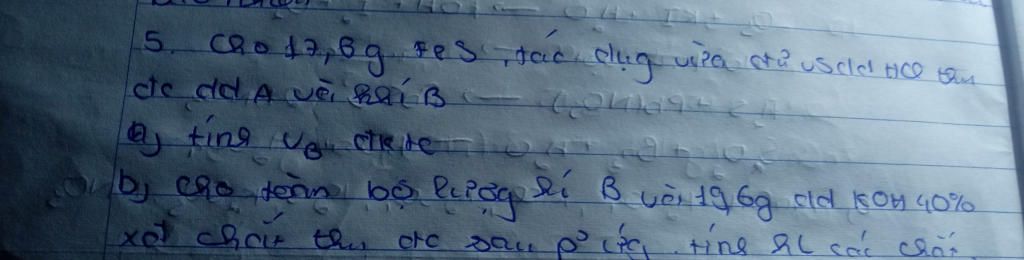 5. cho 17,6g FeS, tác dụg vừa đủ vs dd HCl thu
đc dd A và khí B
a) tính VB đktc
b) cho toàn bộ lượg kí B và 19,6g dd KOH 40%
xđ chất thu đc sau pứ, tính kl các chất